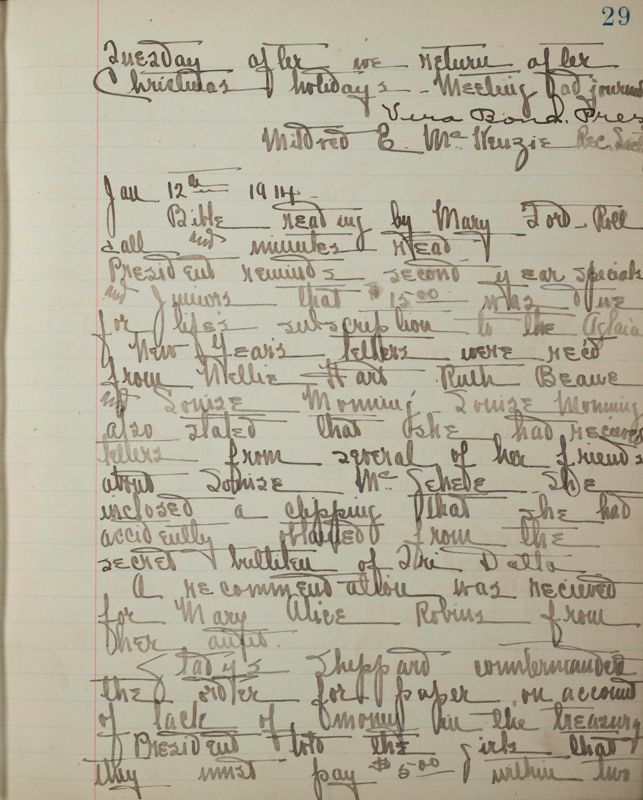 29
Tuesday after we return after
Christmas holidays - Meeting adjourned
Vera Bond. Pres
Mildred E McKenzie Rec. Sec
Jan 12th 1914
Bible reading by Mary Ford - Roll
call and minutes read
President reminds second year specials
and Juniors that $15.00 was due
for life's subscription to the Aglaia
New Year's letters were rec'd
from Nellie Hart Ruth Beame
and Louise Monning. Louise Monning
also stated that she had recieved
letters from several of her friends
about Louise McGehese She
inclosed a clipping that she had
accidently obtained from the
secret bulliten of Tri Delta
A recommendation was recieved
for Mary Alice Robins from
her aunt.
Gladys Sheppard countermanded
the order for paper on account
of lack of money in the treasury
President told the girls that
they must pay $5.00 within two